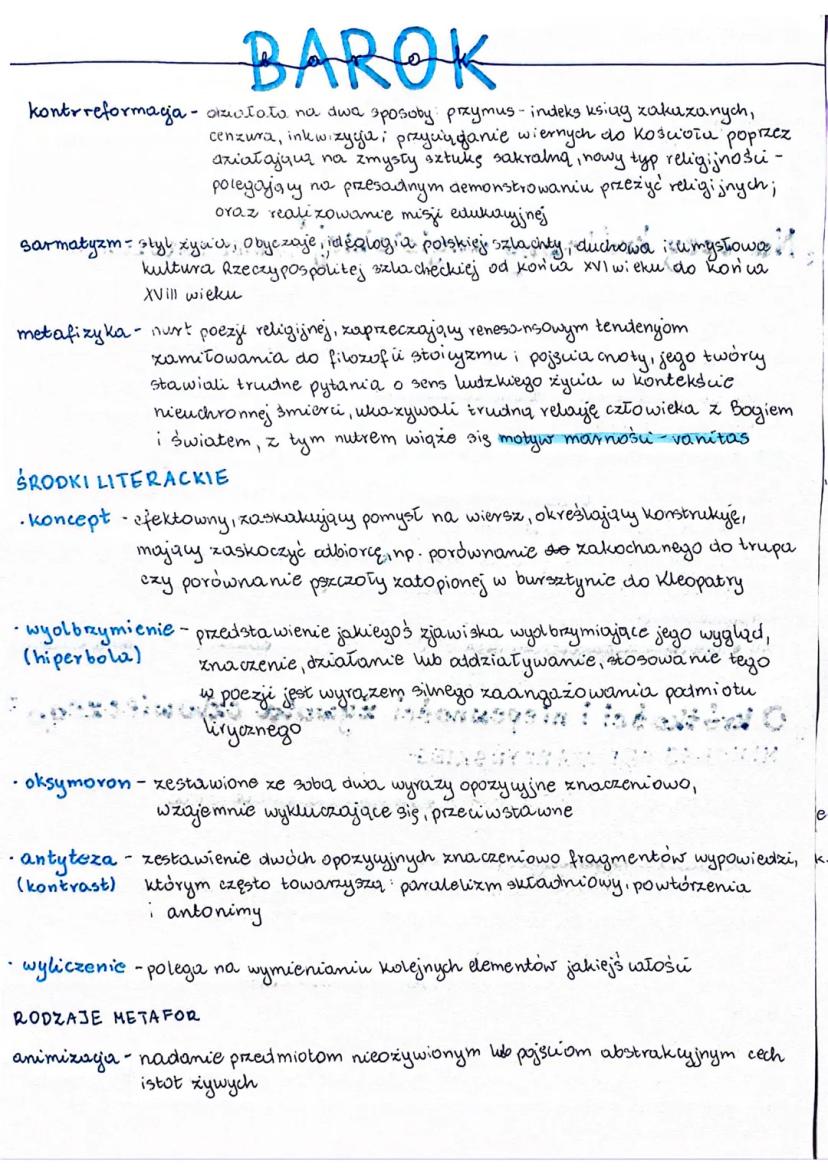 BAROK
barok
kontrreformacja - działała na dwa sposoby: przymus - indeks ksiąg zakazanych,
cenzura, inkwizycja; przyciąganie wiernych do Kościoła poprzez
działającą na zmysły sztukę sakralną, nowy typ religijności -
polegający na przesadnym demonstrowaniu przeżyć religijnych;
oraz realizowanie misji edukacyjnej
sarmatyzm - styl życia, obyczaje, ideologia polskiej szlachty, duchowa i umysłowa
kultura Rzeczypospolitej szlacheckiej od końca XVI wieku do końca
XVIII wieku
metafizyka - nurt poezji religijnej, zaprzeczający renesansowym tendencjom
zamiłowania do filozofii stoicyzmu i pojęcia cnoty, jego twórcy
stawiali trudne pytania o sens ludzkiego życia w kontekście
nieuchronnej śmierci, ukazywali trudną relację człowieka z Bogiem
i światem, z tym nutrem wiąże się motyw marności - vanitas
ŚRODKI LITERACKIE
· koncept - efektowny, zaskakujący pomysł na wiersz, określający konstrukcję,
mający zaskoczyć odbiorcę, np. porównanie do zakochanego do trupa
czy porównanie pszczoły zatopionej w bursztynie do Kleopatry
· wyolbrzymienie - przedstawienie jakiegoś zjawiska wyolbrzymiające jego wygląd,
(hiperbola) znaczenie, działanie lub oddziaływanie, stosowanie tego
w poezji jest wyrazem silnego zaangażowania podmiotu
lirycznego
· oksymoron - zestawione ze sobą dwa wyrazy opozycyjne znaczeniowo,
wzajemnie wykluczające się, przeciwstawne
· antyteza - zestawienie dwóch opozycyjnych znaczeniowo fragmentów wypowiedzi,
(kontrast) którym często towarzyszą: paralelizm składniowy, powtórzenia
i antonimy
· wyliczenie - polega na wymienianiu kolejnych elementów jakiejś całości
RODZAJE METAFOR
animizacja - nadanie przedmiotom nieożywionym lub pojęciom abstrakcyjnym cech
istot żywych